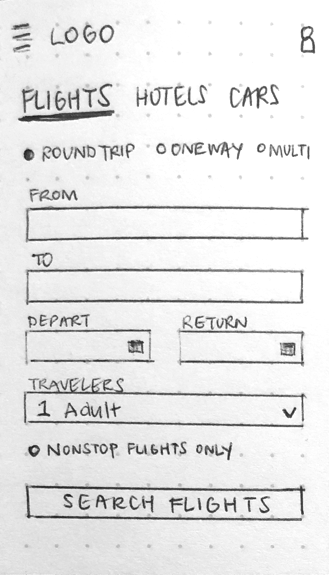 LOGO
FLIGHTS HOTELS CARS
ROUNDTRIP ONEWAY MULTI
FROM
TO
DEPART RETURN
TRAVELERS
1 Adult
NONSTOP FLIGHTS ONLY
SEARCH FLIGHTS